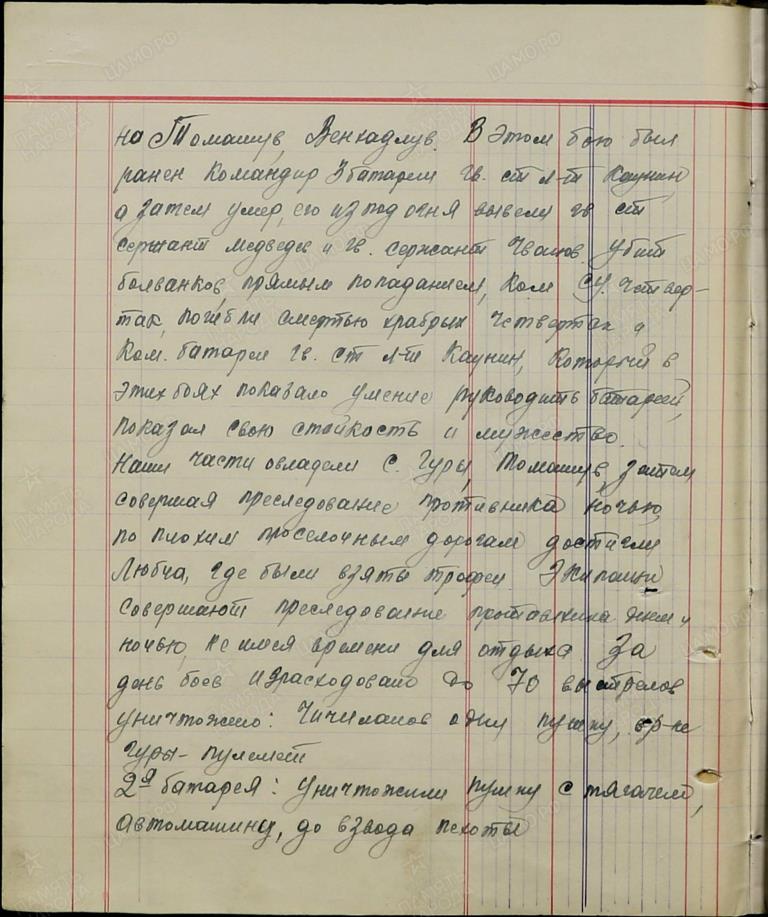 на Томашув, Венхадлув. В этом бою был
ранен командир 3 батареи гв. ст л-т Каунин,
а затем умер, его из под огня вывели гв ст
сержант Медведев и гв. сержант убит
болванков, прямым попаданием, ком СУ. Четвер-
так, погибли смертью храбрых Четвертак и
Ком. батареи гв. ст л-т Каунин, который в
этих боях показало умение руководить батареей,
показал свою стойкость и мужество.
Наши части овладели с. Гуры, Томашув, затем
совершая преследование противника ночью,
по плохим проселочным дорогам достигли
Любча, где были взяты трофеи. Экипажи
совершают преследование противника днем и
ночью, не имея времени для отдыха За
день боев израсходовано до 70 выстрелов
уничтожено: Чичиланов одну пушку, в р-не
Гуры - пулемет
2я батарея: уничтожили пушку с тягачем,
автомашину, до взвода пехоты